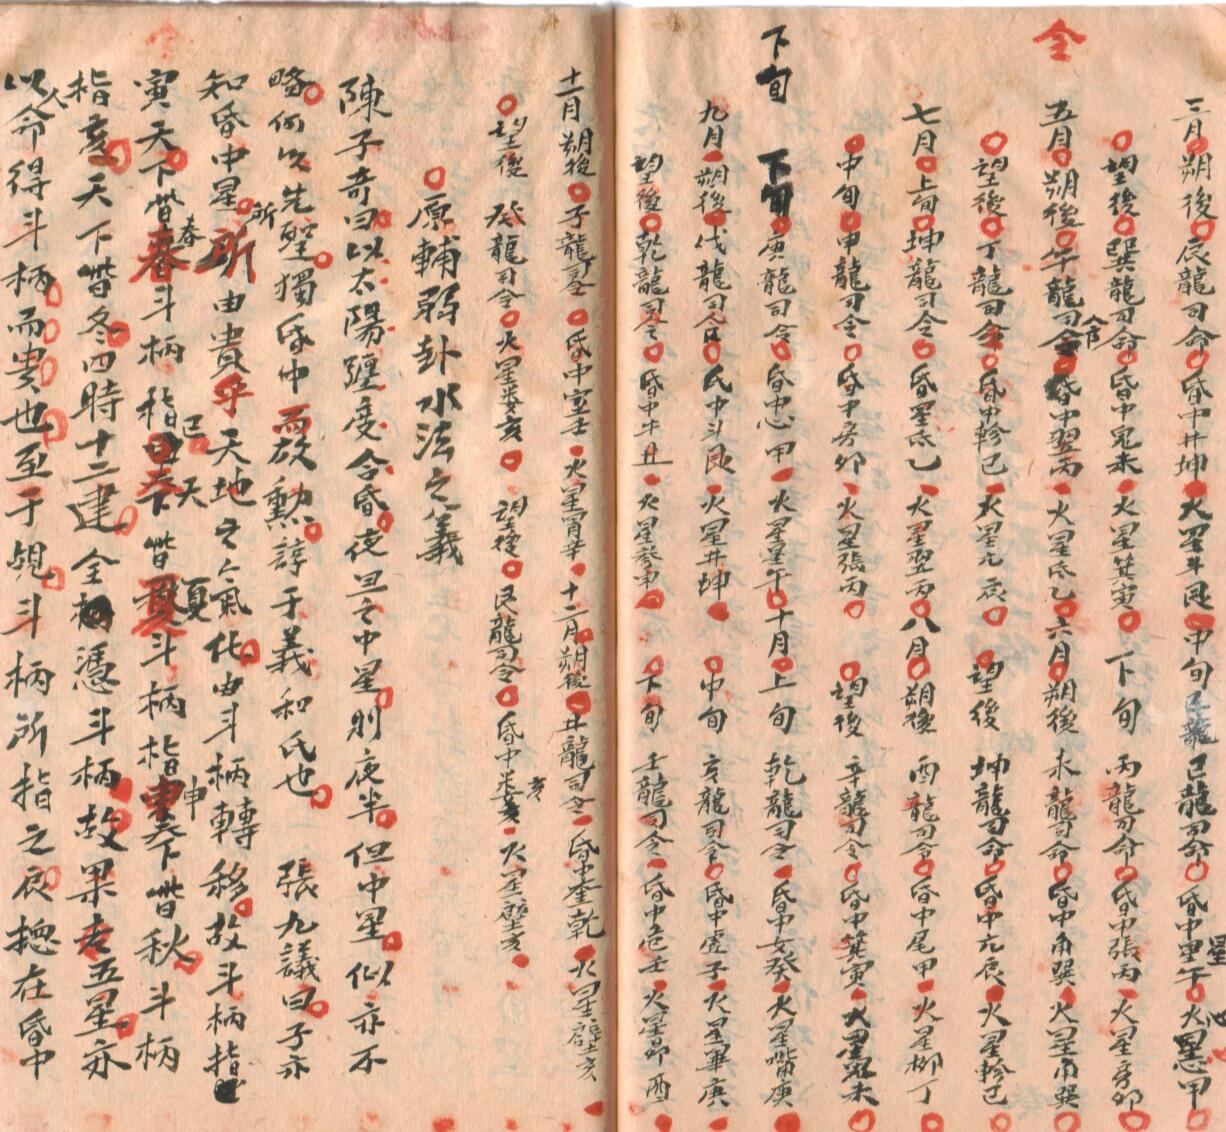 全
三月朔後辰龍司命昏中井坤火星斗艮中旬巳龍司命昏中星午火星心甲
望後巽龍司命昏中鬼未火星箕寅下旬丙龍司命昏中張丙火星房卯
五月朔後午龍司令昏中翌丙火星氐乙六月朔後未龍司命昏中角巽火星角巽
望後丁龍司令昏中軫巳火星亢辰望後坤龍司命昏中亢辰火星軫巳
七月上旬坤龍司令昏星氐乙火星翌丙八月朔後酉龍司令昏中尾甲火星柳丁
中旬申龍司令昏中房卯火星張丙望後辛龍司令昏中箕寅火星鬼未
下旬下旬庚龍司令昏中心甲火星星午十月上旬乾龍司令昏中女癸火星嘴庚
九月朔後戌龍司令昏中斗艮火星井坤中旬亥龍司令昏中虛子火星畢庚
望後乾龍司令昏中牛丑火星參申下旬壬龍司令昏中危壬火星昴酉
十一月朔後子龍司令昏中室壬火星胃辛十二月朔後丑龍司令昏中奎乾火星壁亥
望後癸龍司令火星婁亥望後艮龍司令昏中婁亥火星壁亥
原輔弱卦水法之義
陳子奇曰以太陽躔度令昏夜旦之中星則夜半但中星似亦不
略何以先聖獨昏中而放勲諄于義和氏也張九議曰子亦
知昏中星所由貴乎天地之氣化由斗柄轉移故斗柄指
寅天下皆春斗柄指巳天下皆夏斗柄指申天下皆秋斗柄
指亥天下皆冬四時十二建全憑斗柄故果老五星亦
以人命得斗柄而貴也至于覘斗柄所指之辰摠在昏中